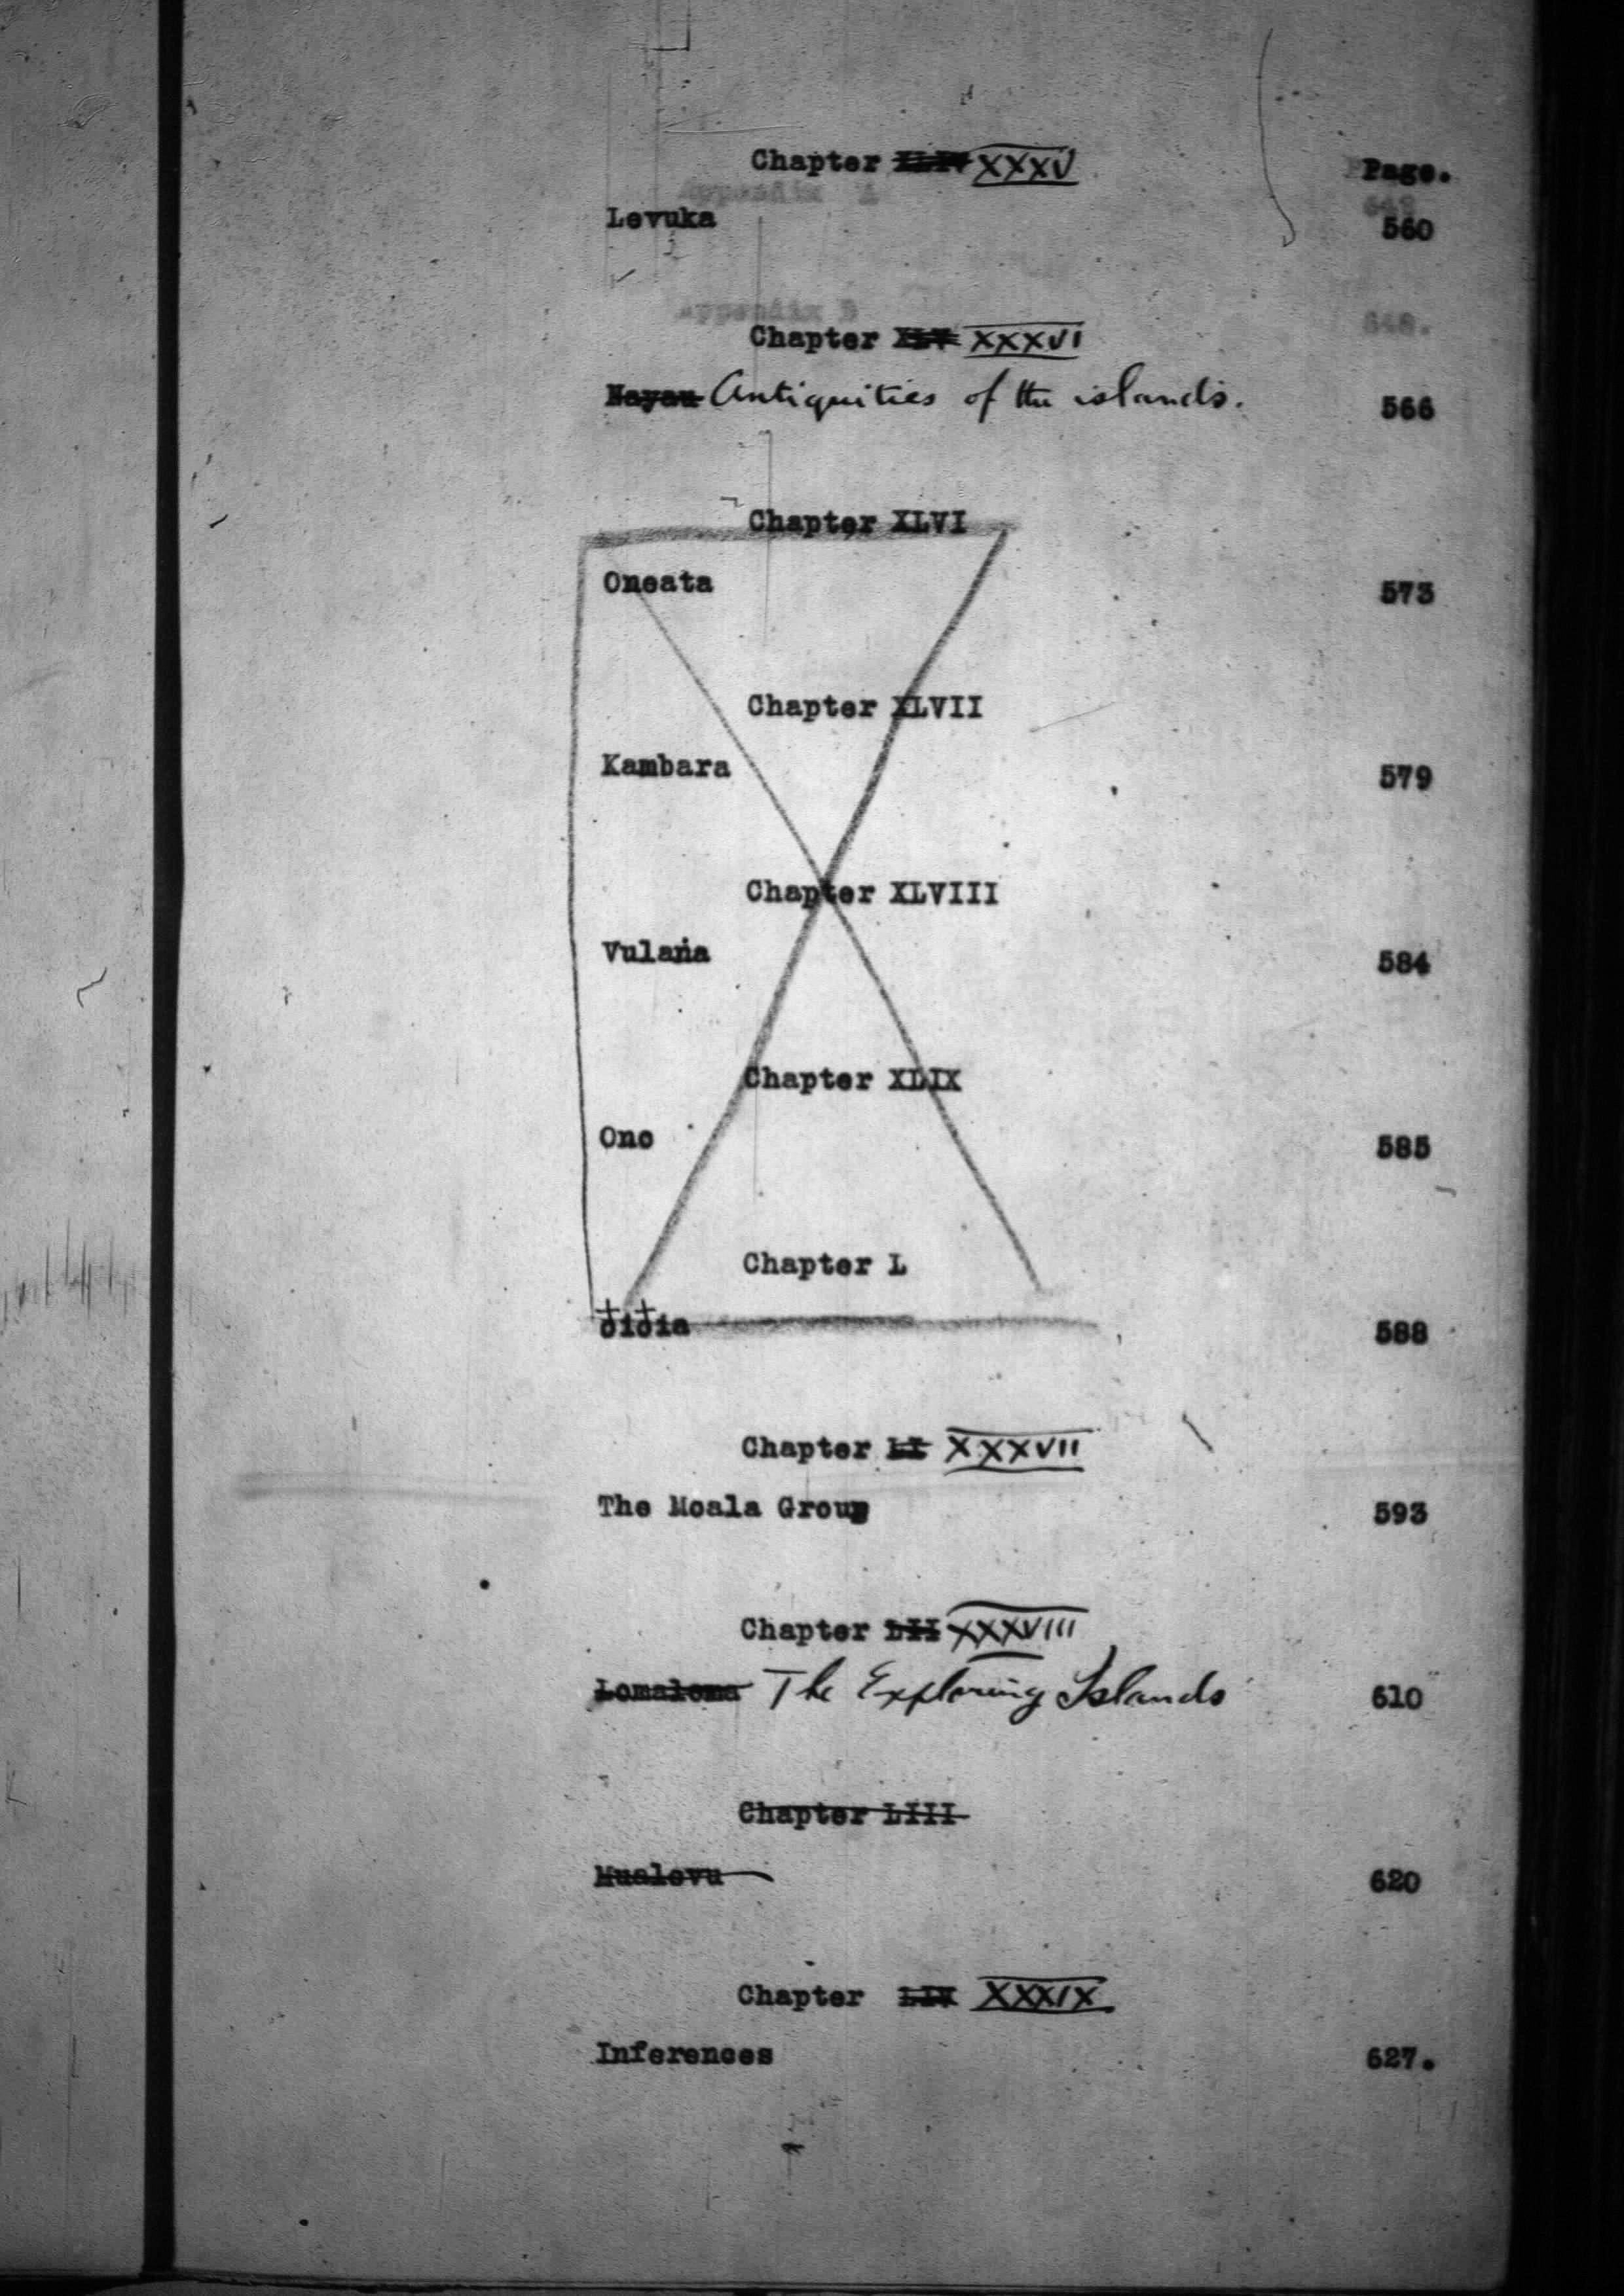 Chapter XLIV XXXV
Page.
Levuka 560
Chapter XLV XXXVI
Nayau Antiquities of the islands. 566
Chapter XLVI
Oneata 573
Chapter XLVII
Kambara 579
Chapter XLVIII
Vulaṅa 584
Chapter XLIX
Ono 585
Chapter L
ðiðia 588
Chapter LI XXXVII
The Moala Group 593
Chapter LII XXXVIII
Lomaloma The Exploring Islands 610
Chapter LIII
Mualevu 620
Chapter LIV XXXIX
Inferences 627.